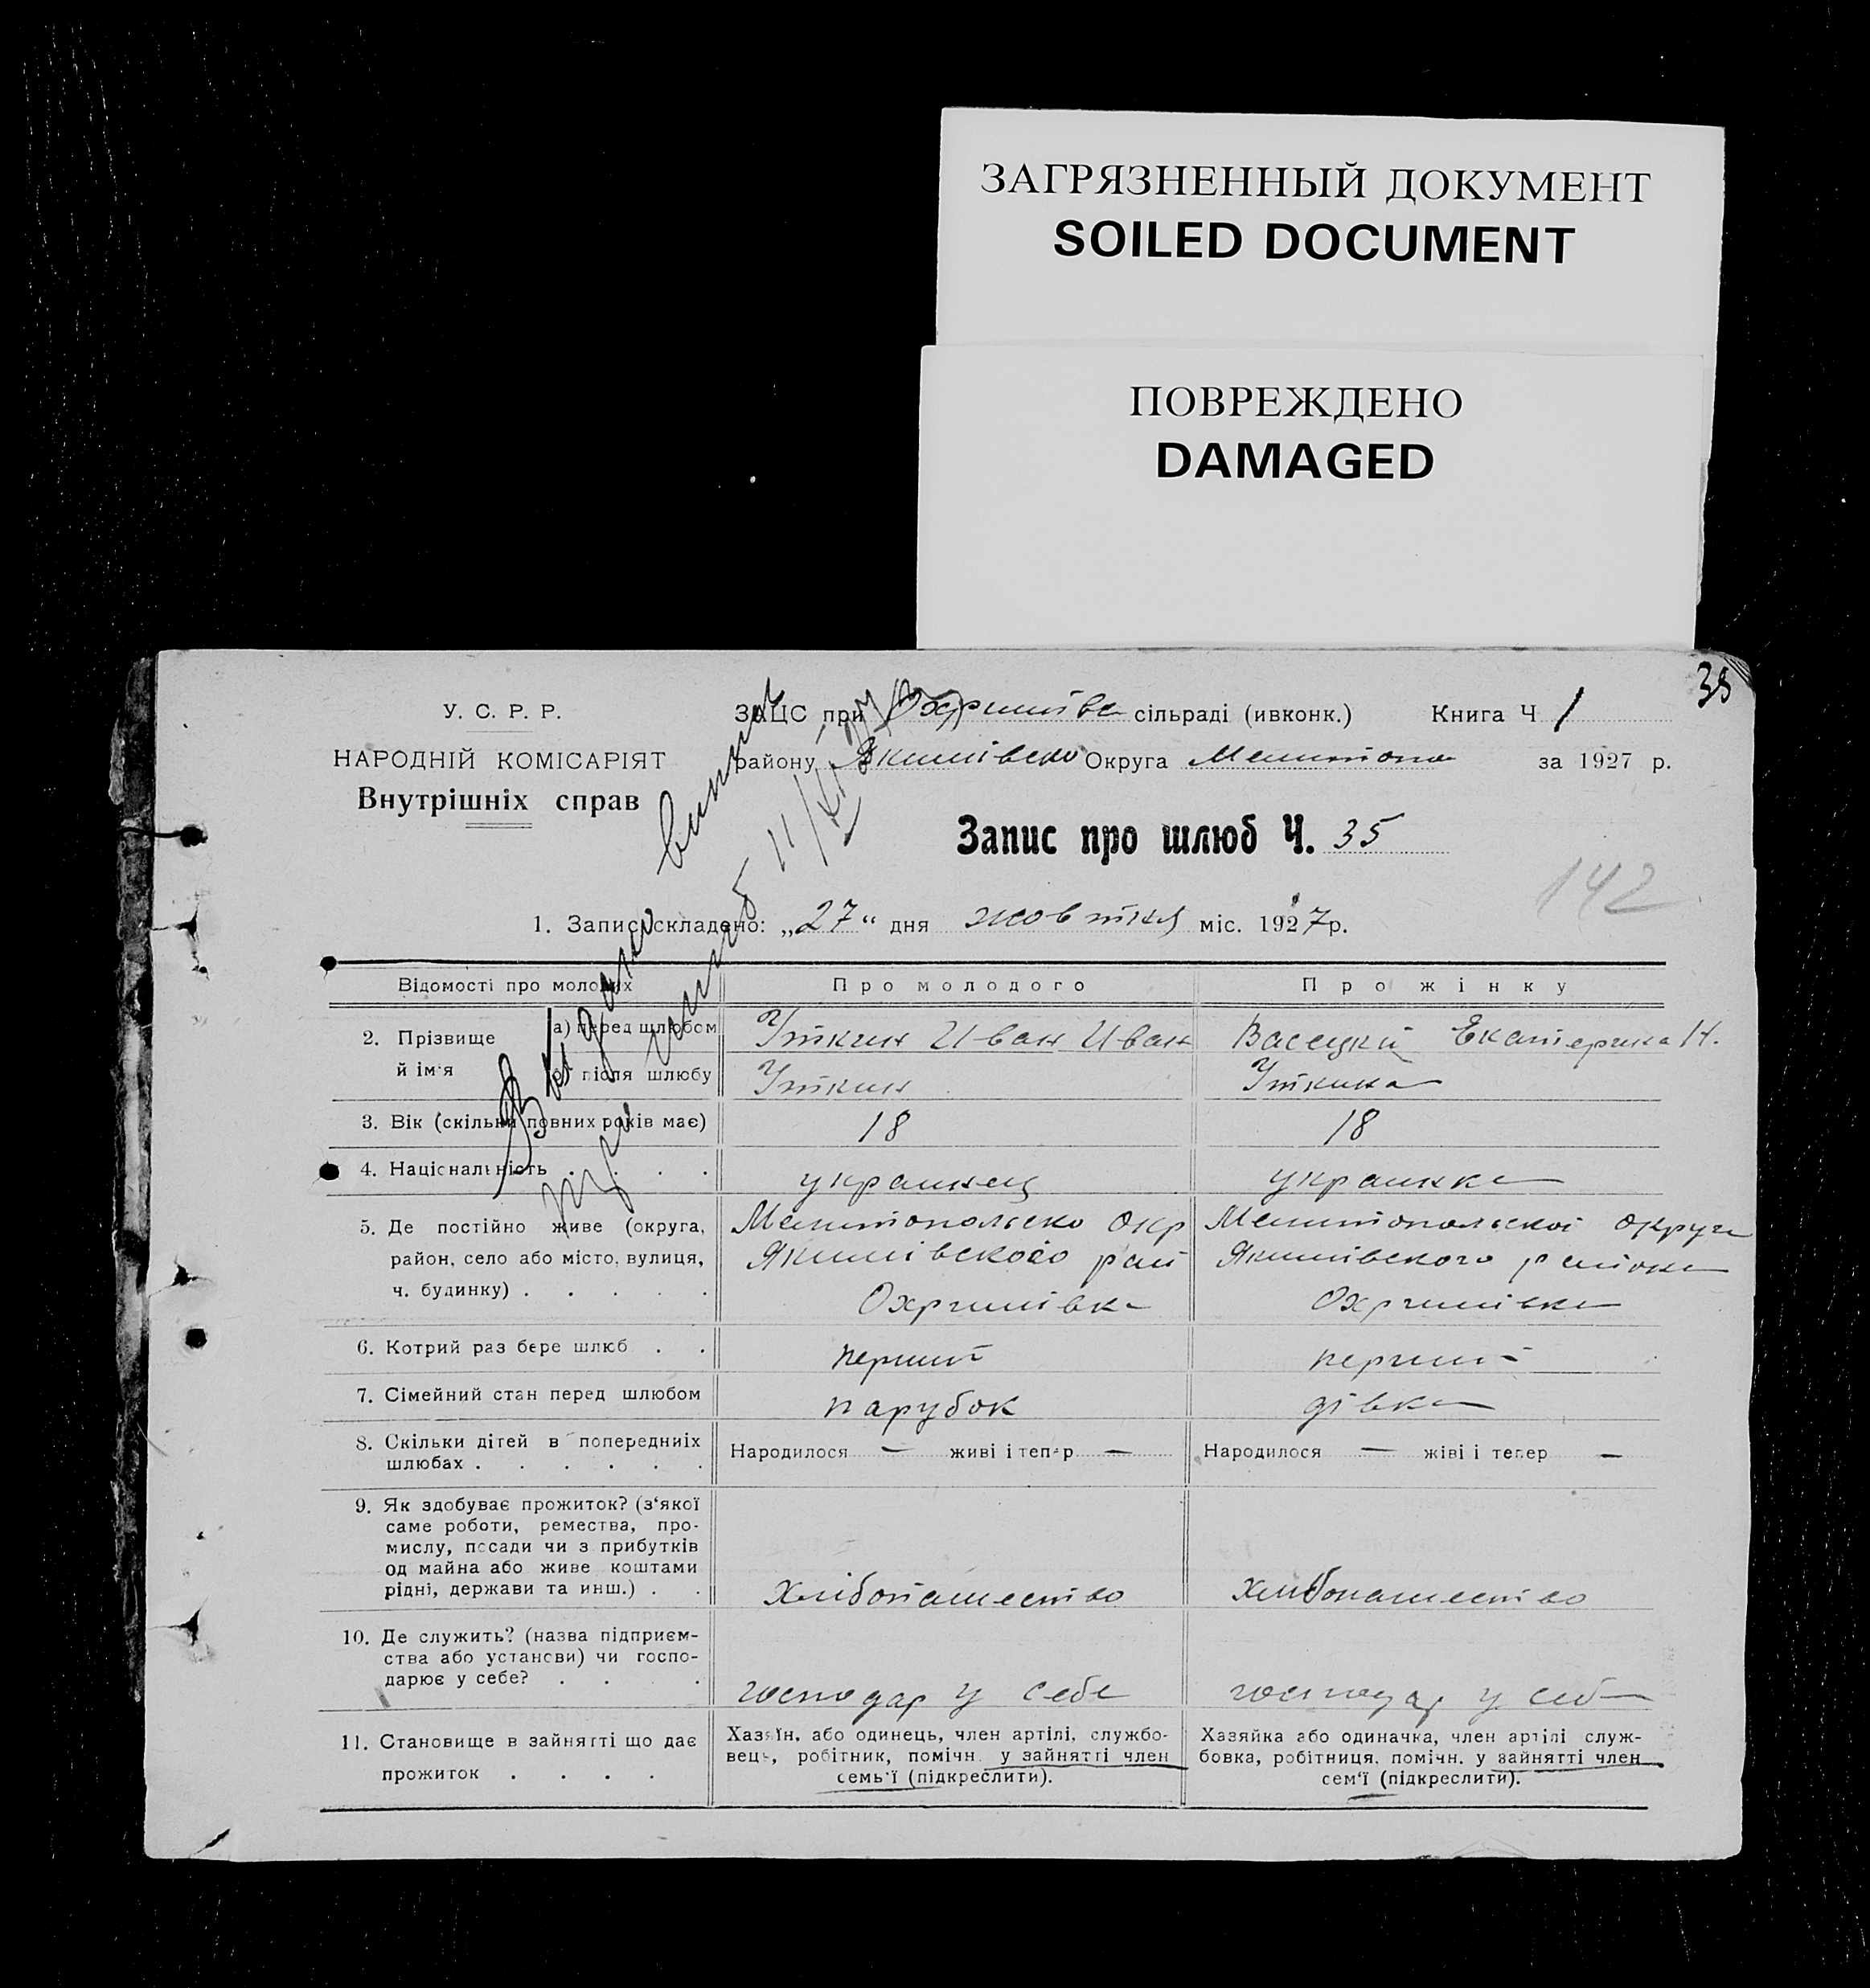 ЗАГРЯЗНЕННЫЙ ДОКУМЕНТ
SOILED DOCUMENT
ПОВРЕЖДЕНО
DAMAGED
35
У. С. Р. Р.
НАРОДНІЙ КОМІСАРІЯТ
Внутрішніх справ
ЗАЦС при Охримівс сільраді (ивконк.) Книга Ч 1
району Якимівсько Округа Мелитопо за 1927 р.
Запис про шлюб Ч. 35
142
1. Запис складено: „27“ дня жовтня міс. 1927 р.
Відомості про молодих Про молодого Про жінку
2. Прізвище й ім'я
а) перед шлюбом Уткин Иван Иван Васецкій Екатерина Н.
б) після шлюбу Уткин Уткина
3. Вік (скільки повних років має) 18 18
4. Національність украинец украинка
5. Де постійно живе (округа, Мелитопольско окр Мелитопольскоі округи
район, село або місто, вулиця, Якимівского рай Якимівского району
ч. будинку) Охримівка Охримівка
6. Котрий раз бере шлюб перший перший
7. Сімейний стан перед шлюбом парубок дівка
8. Скільки дітей в попередниіх Народилося — живі і тепер — Народилося — жіві і тепер —
шлюбах
9. Як здобуває прожиток? (з‘якої
саме роботи, ремества, про-
мислу, посади чи з прибутків
од майна або живе коштами
рідні, держави та инш.) Хлібопашество Хлібопашество
10. Де служить? (назва підприєм-
ства або установи) чи госпо-
дарює у себе? господар у себе господар у себе
11. Становище в зайнятті що дає
прожиток
Хазяїн, або одинець, член артілі, службо-
вець, робітник, помічн. у зайнятті член
семь‘ї (підкреслити).
Хазяйка або одиначка, член артілі служ-
бовка, робітниця, помічн. у зайнятті член
сем‘ї (підкреслити).